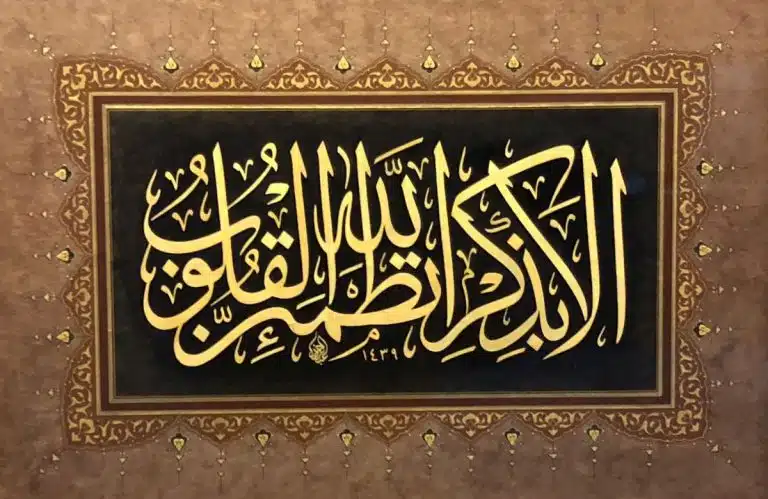 أَلَا بِذِكْرِ اللَّهِ تَطْمَئِنُّ الْقُلُوبُ
١٤٣٩